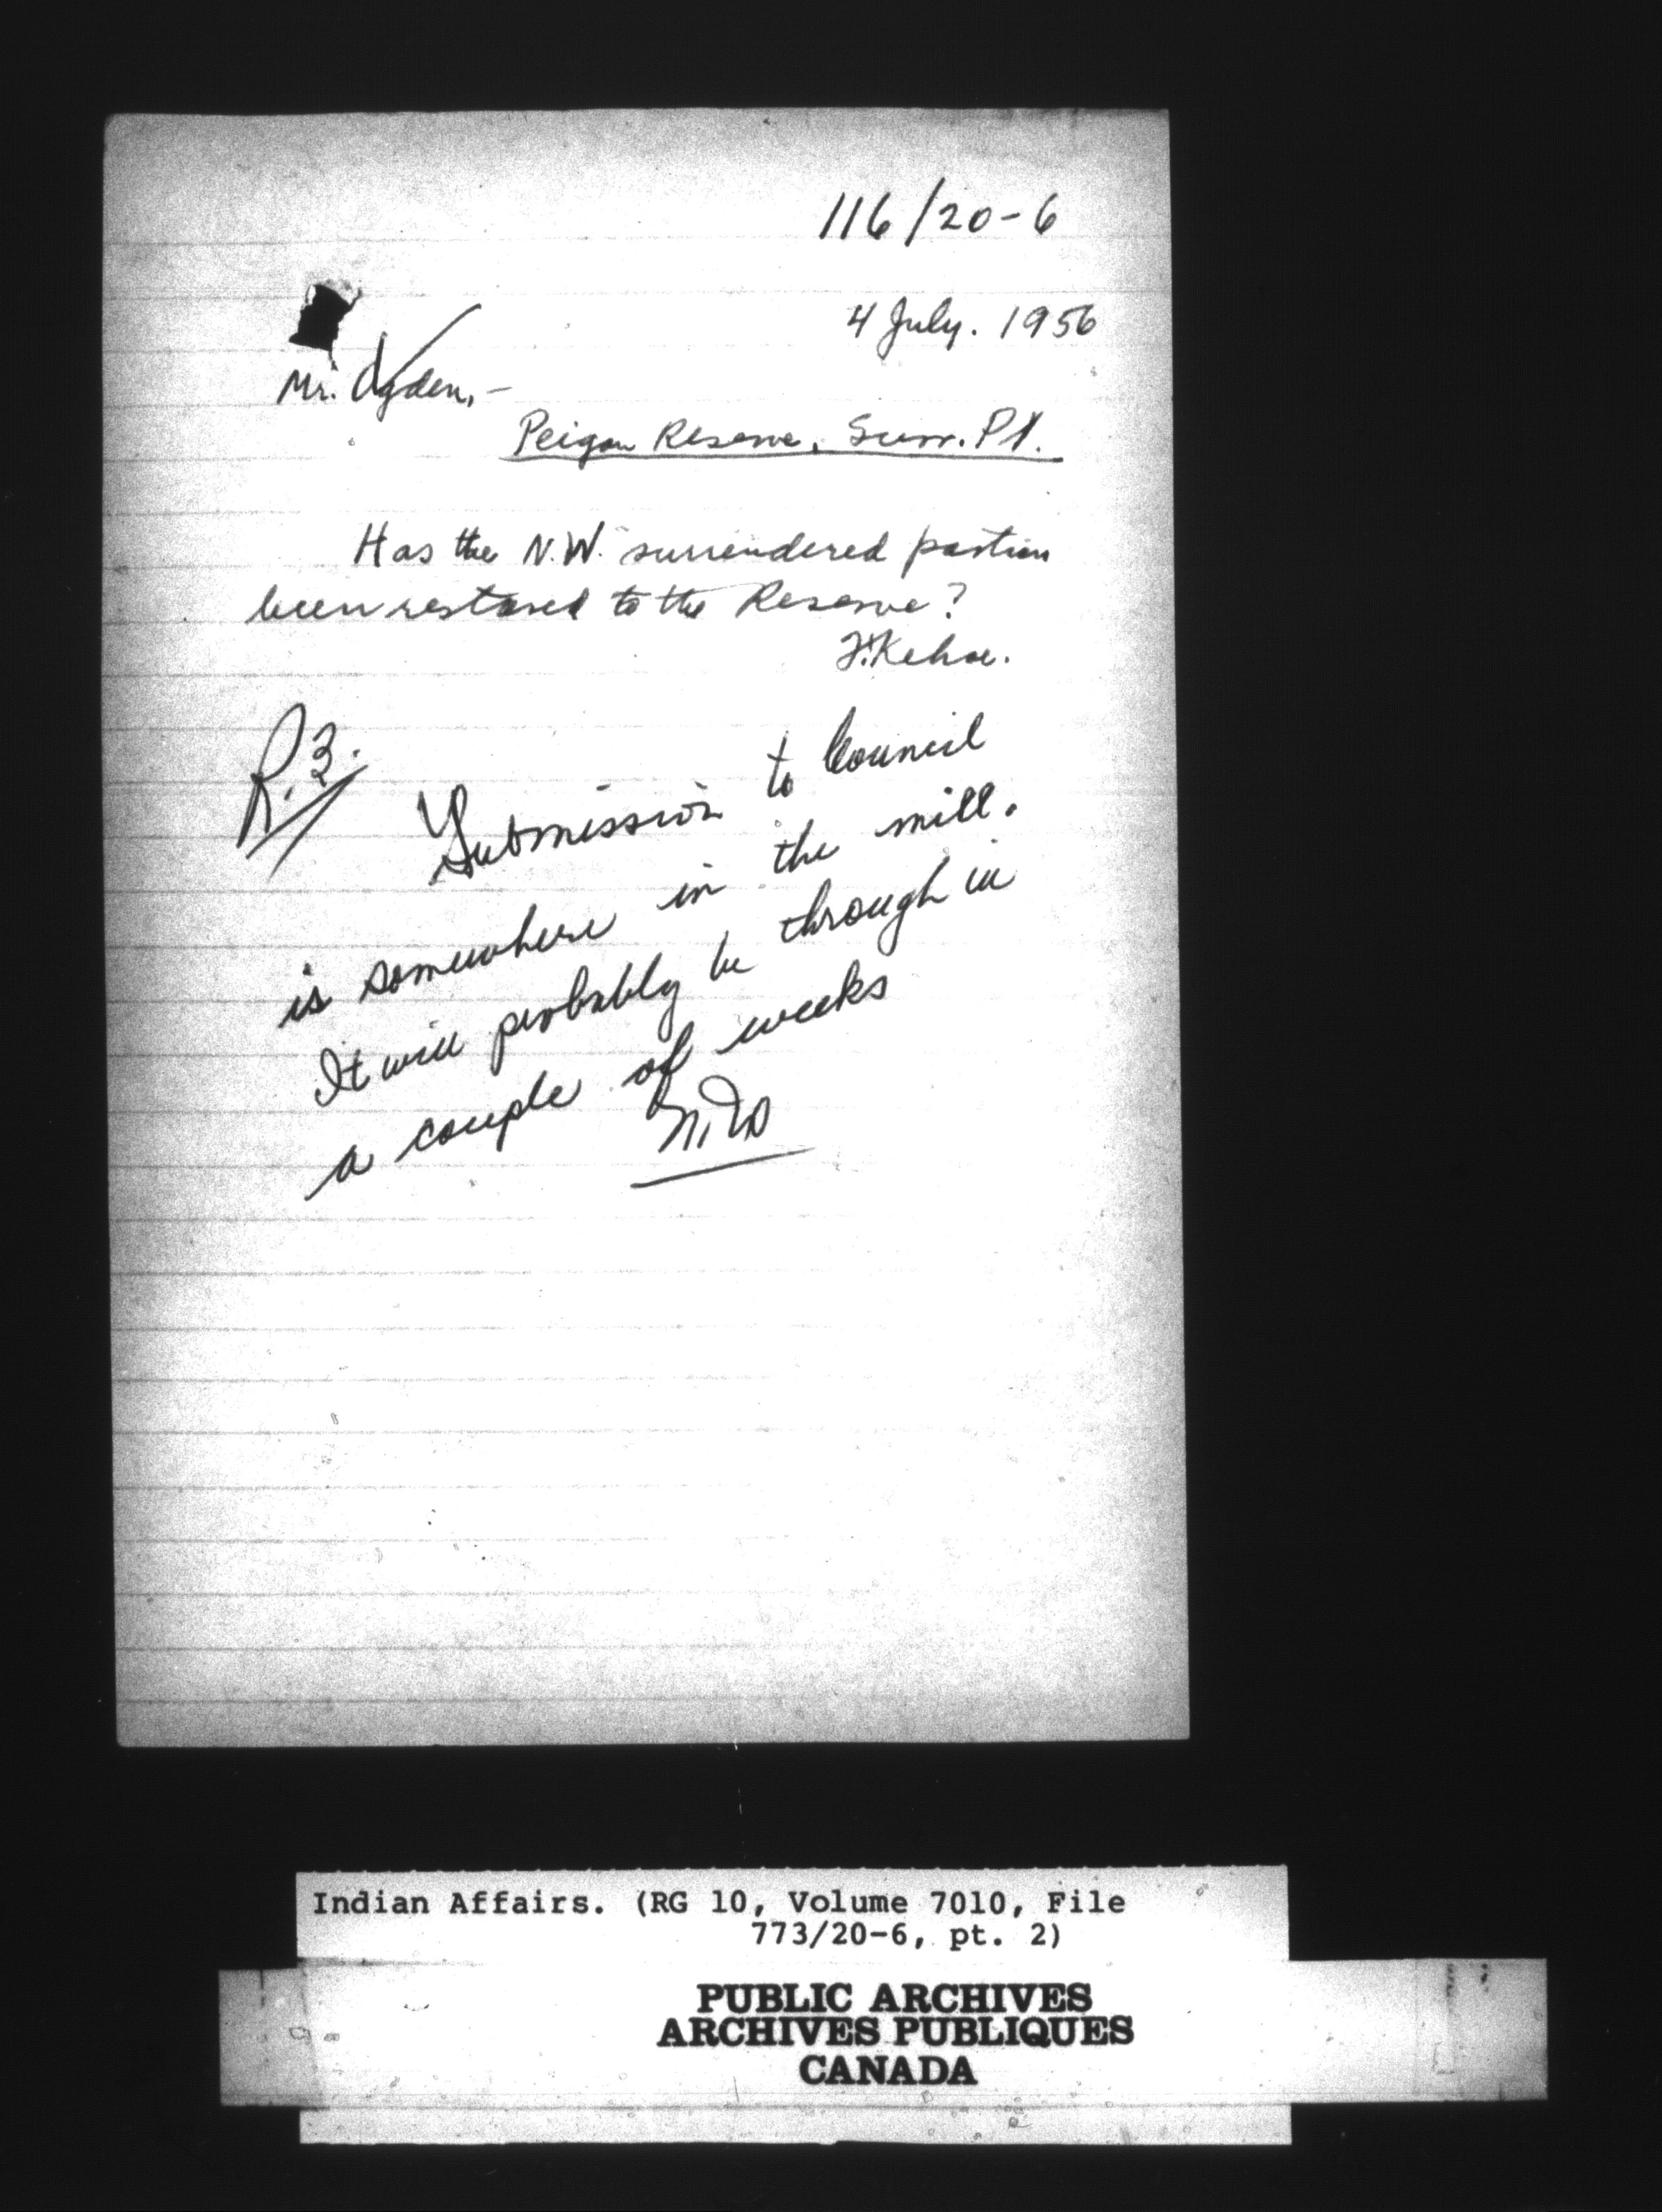 116/20-6
4 July. 1956
Mr. Ogden,-
Peigan Reserve, Surr. Pt.
Has the N.W. surrendered portion
been restored to the Reserve?
F. Kehoe.
R.3.
Submission to Council
is somewhere in the mill.
It will probably be through in
a couple of weeks
Indian Affairs. (RG 10, Volume 7010, File
773/20-6, pt. 2)
PUBLIC ARCHIVES
ARCHIVES PUBLIQUES
CANADA